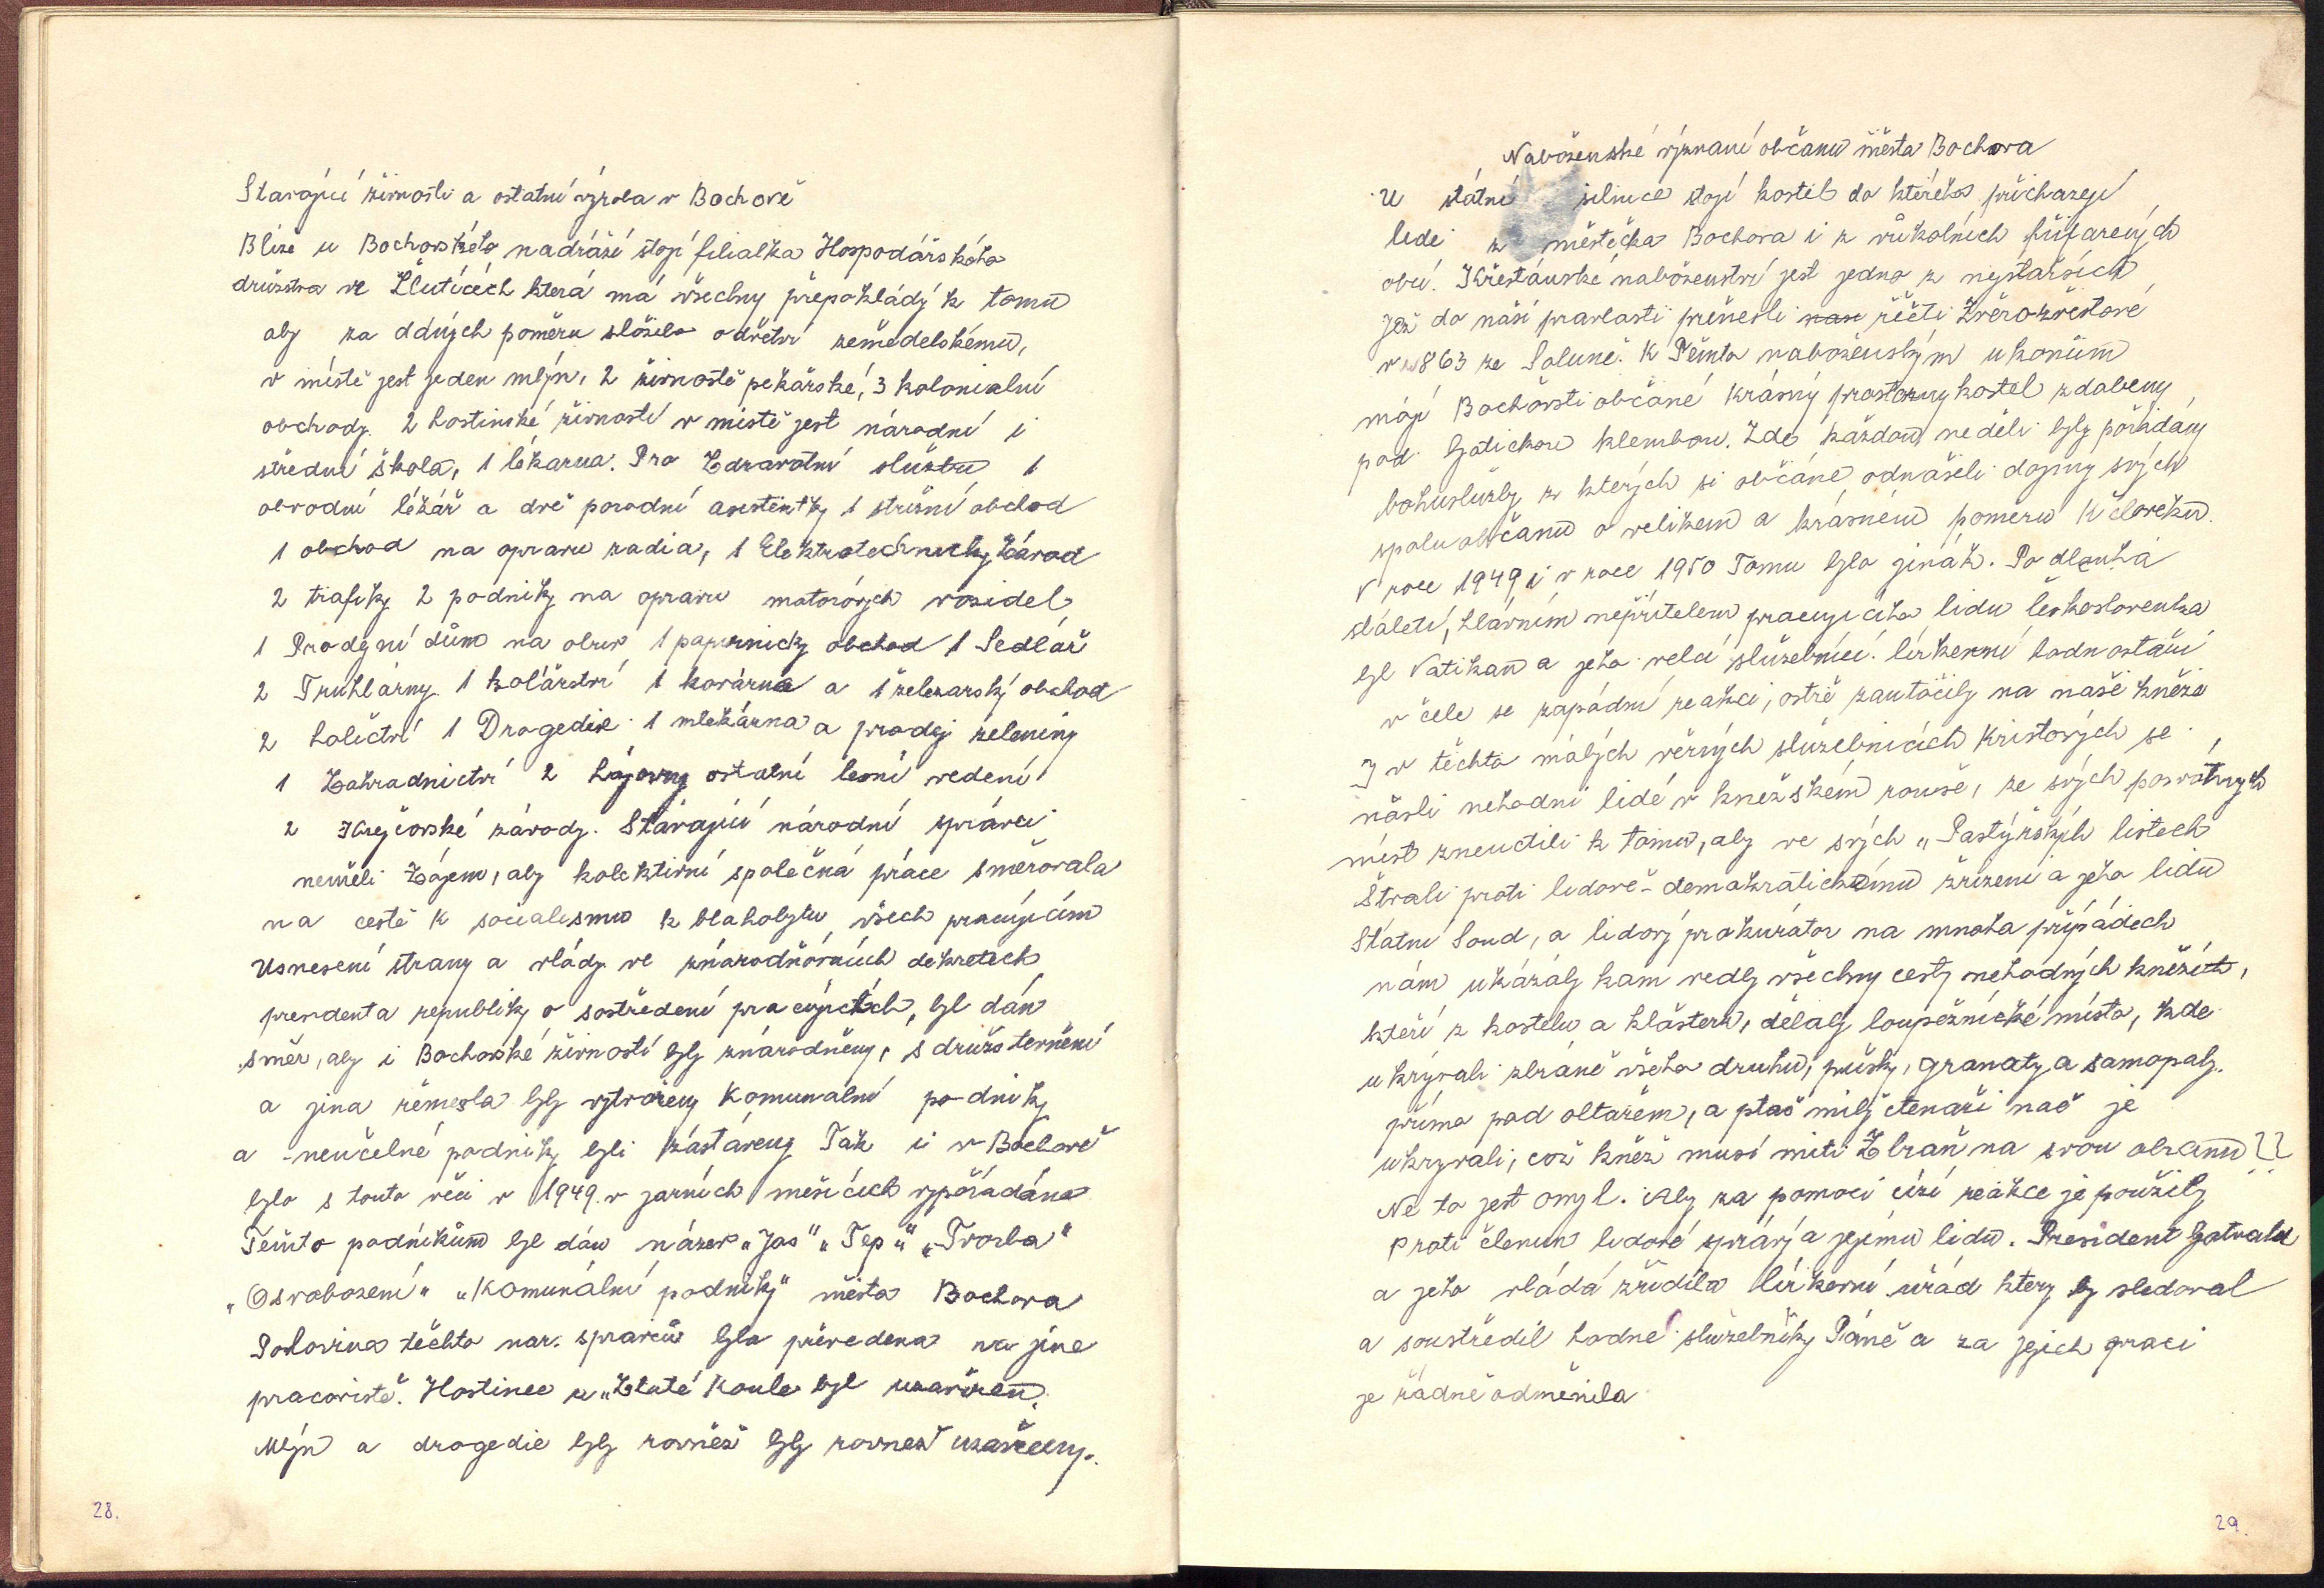 Stávající živnosti a ostatní výroba v Bochově
Blíže u Bochovského nadráží stojí filialka Hospodářského
družstva ve Žluticích která má všechny přepoklády k tomu
aby za ddných poměru sloužilo odvětví zemědelskému,
v místě jest jeden mlýn, 2 živnostě pekářské, 3 kolonialní
obchody. 2 hostinské živností v místě jest národní i
střední škola, 1 lékarna. Pro Zdravotní službu 1
obvodní lékář a dvě porodní asistentky 1 střižní obchod
1 obchod na opravu radia, 1 Elektrotechnický Závod
2 trafiky 2 podniky na opravu motorových vozidel
1 Prodejní dům na obuv 1 papírnický obchod 1 Sedlář
2 Truhlárny 1 kolářství 1 kovárna a 1 železarský obchod
2 holičtví 1 Drogedie 1 mlékárna a prodej zeleniny
1 Zahradnictví 2 hájovny ostatní lesní vedení
2 Krejčovské závody. Stávající národní správci
neměli Zájem, aby kolektivní společná práce směrovala
na cestě k socialismu k blahobytu všech pracujícím
Usnesení strany a vlády ve znárodňovacích dekretech
presidenta republiky o sostředení pracujících, byl dán
směr, aby i Bochovské živností byly znárodněny, sdružsternění
a jina řemesla byly vytvořeny Komunalní podniky
a neučelné podniky byli zastaveny Tak i v Bochově
bylo s touto věci v 1949. v jarních měsících vypořádáno
Těmto podníkům byl dán název „Jas" „Tep" „Tvorba"
„Osvobození" „Komunální podniky" města Bochova
Polovina těchto nar. spravců byla převedena na jine
pracoviště. Hostinec u „Zlaté Koule byl uzavřen.
Mlýn a drogedie byly rovněž byly rovnež uzavřeny.
28.
Naboženské význaní občanu města Bochova
U státní silnice stojí kostel do kteréko přichazejí
lidé z městečka Bochova i z vůkolních přifarených
obcí. Křesťánské naboženství jest jedno z nejstaršich
Jež do naší pravlasti přinesli nasi řečti Zvěrozvěstové
v 863 ze Soluně. K Těmto naboženským ukonům
mají Bochovsti občané krásný prostorný kostel zdobeny
pod Gotickou klembou. Zde každou neděli byly pořádány
bohuslužby z kterých si občáne odnášeli dojmy svých
spoluobčanu o velikem a krásném poměru k človeku.
V roce 1949 i v roce 1950 Tomu bylo jinák. Po dlouhá
stáletí, hlávním nepřítelem pracujícího lidu československa
byl Vatikan a jeho velcí služebníci. církevní hodnostáři
v čele se zapádní reakci, ostře zautočily na naše kněze
I v těchto málých věrných služebnicích Kristových se
násli nehodní lidé v kněžském rouše, ze svých posvátných
míst zneuctili k tomu, aby ve svých „Pastýřských listech
Štvali proti lidově-demokratickému zřizení a jeho lidu
Státní Soud, a lidový prokurátor na mnoha případech
nám ukázaly kam vedly všechny cesty nehodných kněžích,
kteří z kostelu a klášteru, dělaly loupežnické místa, kde
ukrývali zbráně všeho druhu, pušky, granaty a samopaly.
přímo pod oltařem, a ptaš milý čtenaři nač je
ukryvali, což kněž musí míti Zbraň na svou obranu??
Ne to jest omyl. Aby za pomoci cizí reakce je použily
proti členum lidové správy a jejímu lidu. President Gotvald
a jeho vláda zřídila církevní úřad ktery by sledoval
a soustředil hodné služebníky Páně a za jejich praci
je řádně odměnila
29.